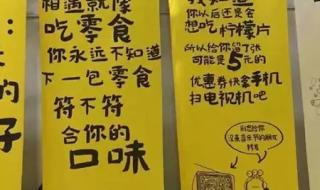 :
的
子
相遇就像
吃零食
你永远不知道
下一包零食
符不符
合你的
口味
你以后还是会
想吃柠檬片
所以给你留了张
可能是5元的
优惠券快拿手机
扫电视机吧
别忘给你
没来音乐节的朋友